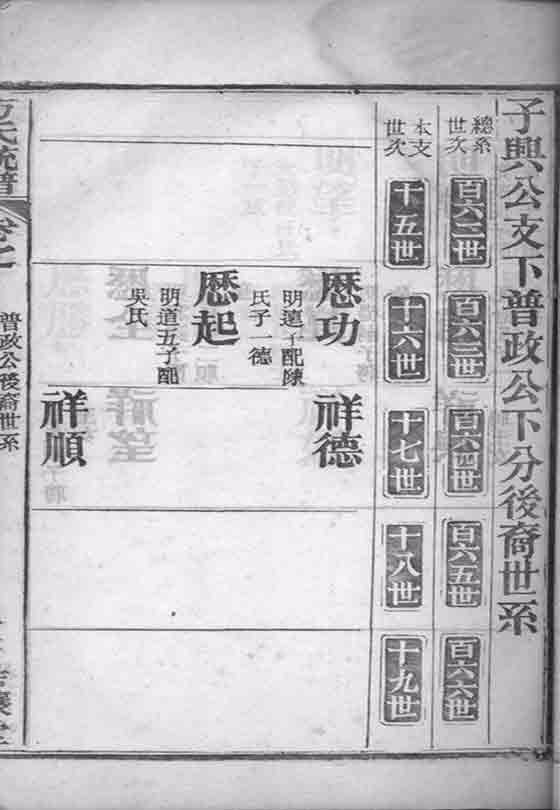 子興公支下普政公下分後裔世系
總系
世次
百六二世
百六三世
百六四世
百六五世
百六六世
本支
世次
十五世
十六世
十七世
十八世
十九世
歴功
明子配陳
氏子一德
祥德
歴起
明道五子配
吳氏
祥順
氏統譜
卷之
普政公後裔世系